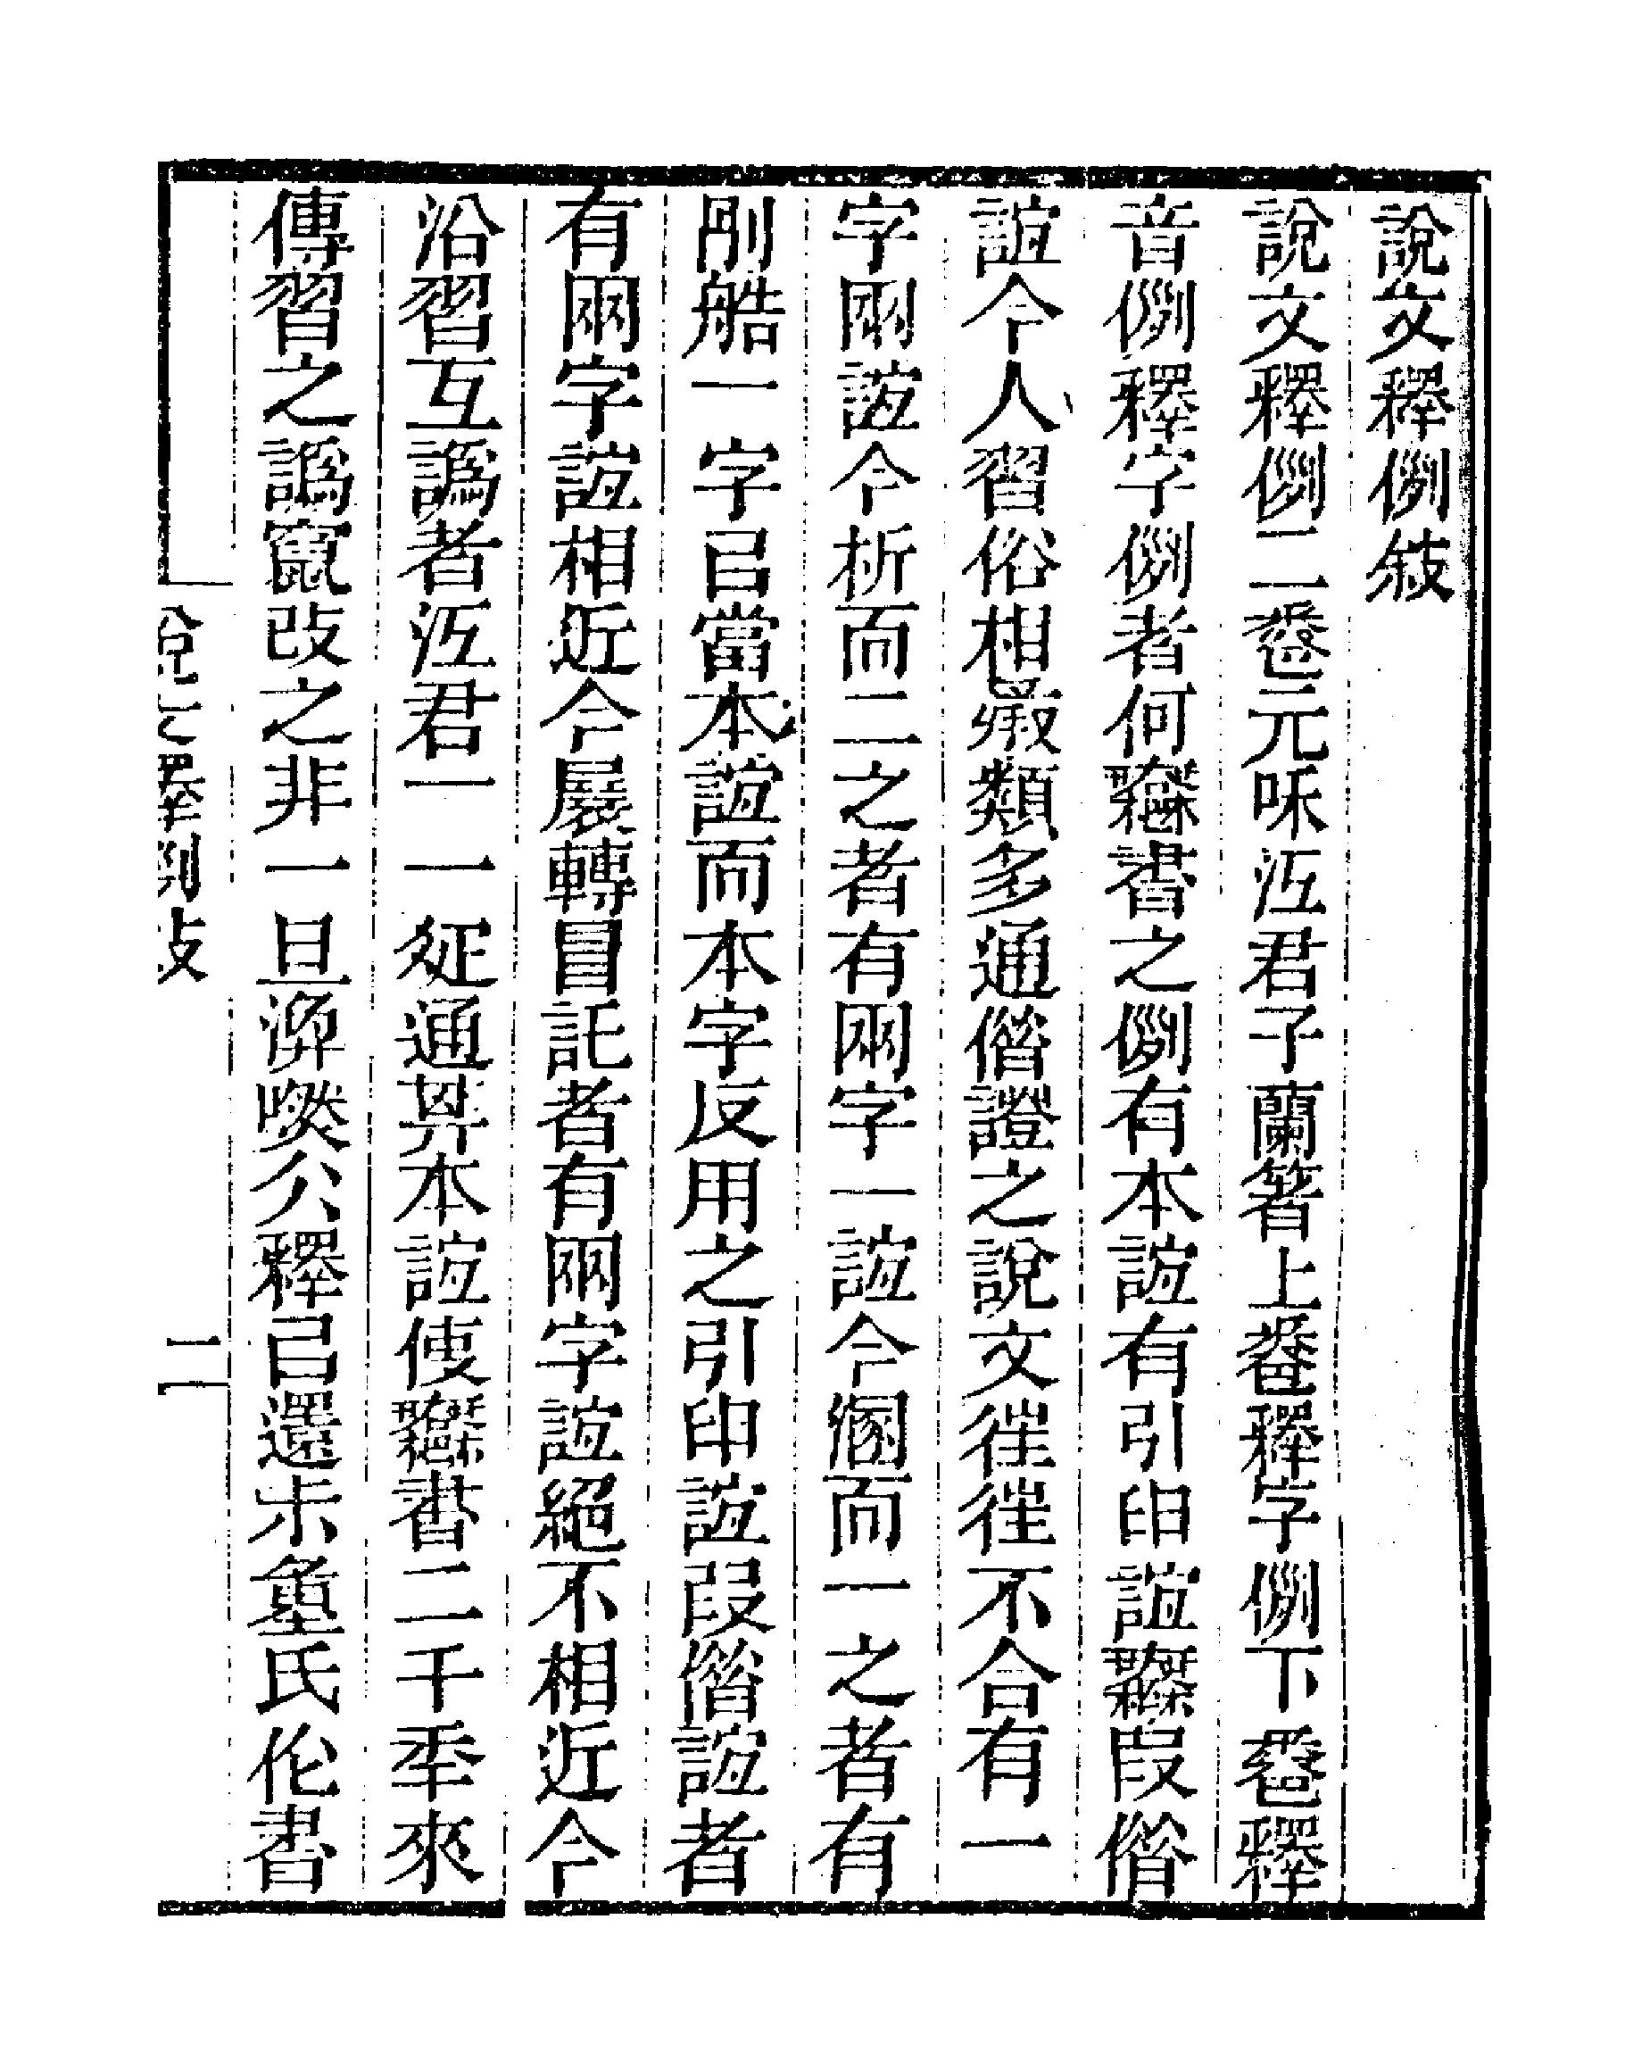 說文釋例敍
說文釋例二卷元咊江君子蘭箸上卷釋字例下卷釋
音例釋字例者何隸書之例有本誼有引申誼隸叚借
誼今人習俗相沿類多通借證之說文往往不合有一
字兩誼今析而二之者有兩字一誼今溷而一之者有
剏艁一字㠯當本誼而本字反用之引申誼叚借誼者
有兩字誼相近今展轉冒託者有兩字誼絕不相近今
沿習互譌者江君一一延通其本誼使隸書二千秊來
傳習之譌竄改之非一旦渙然仌釋㠯還尗重氏作書
說文釋例敍
二